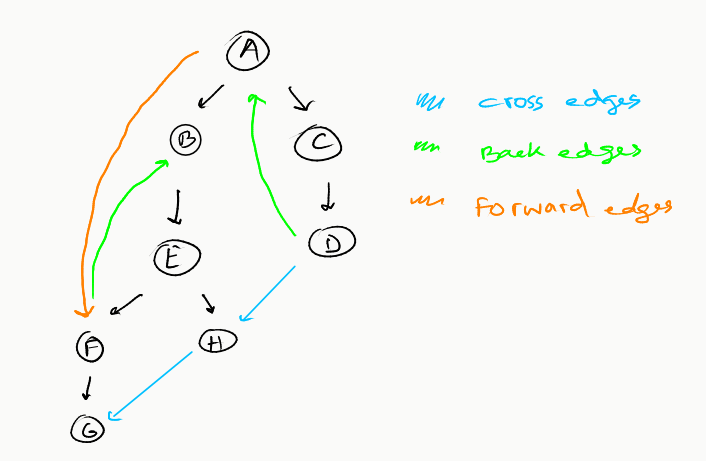 A
B
C
E
D
F
H
G
cross edges
Back edges
Forward edges